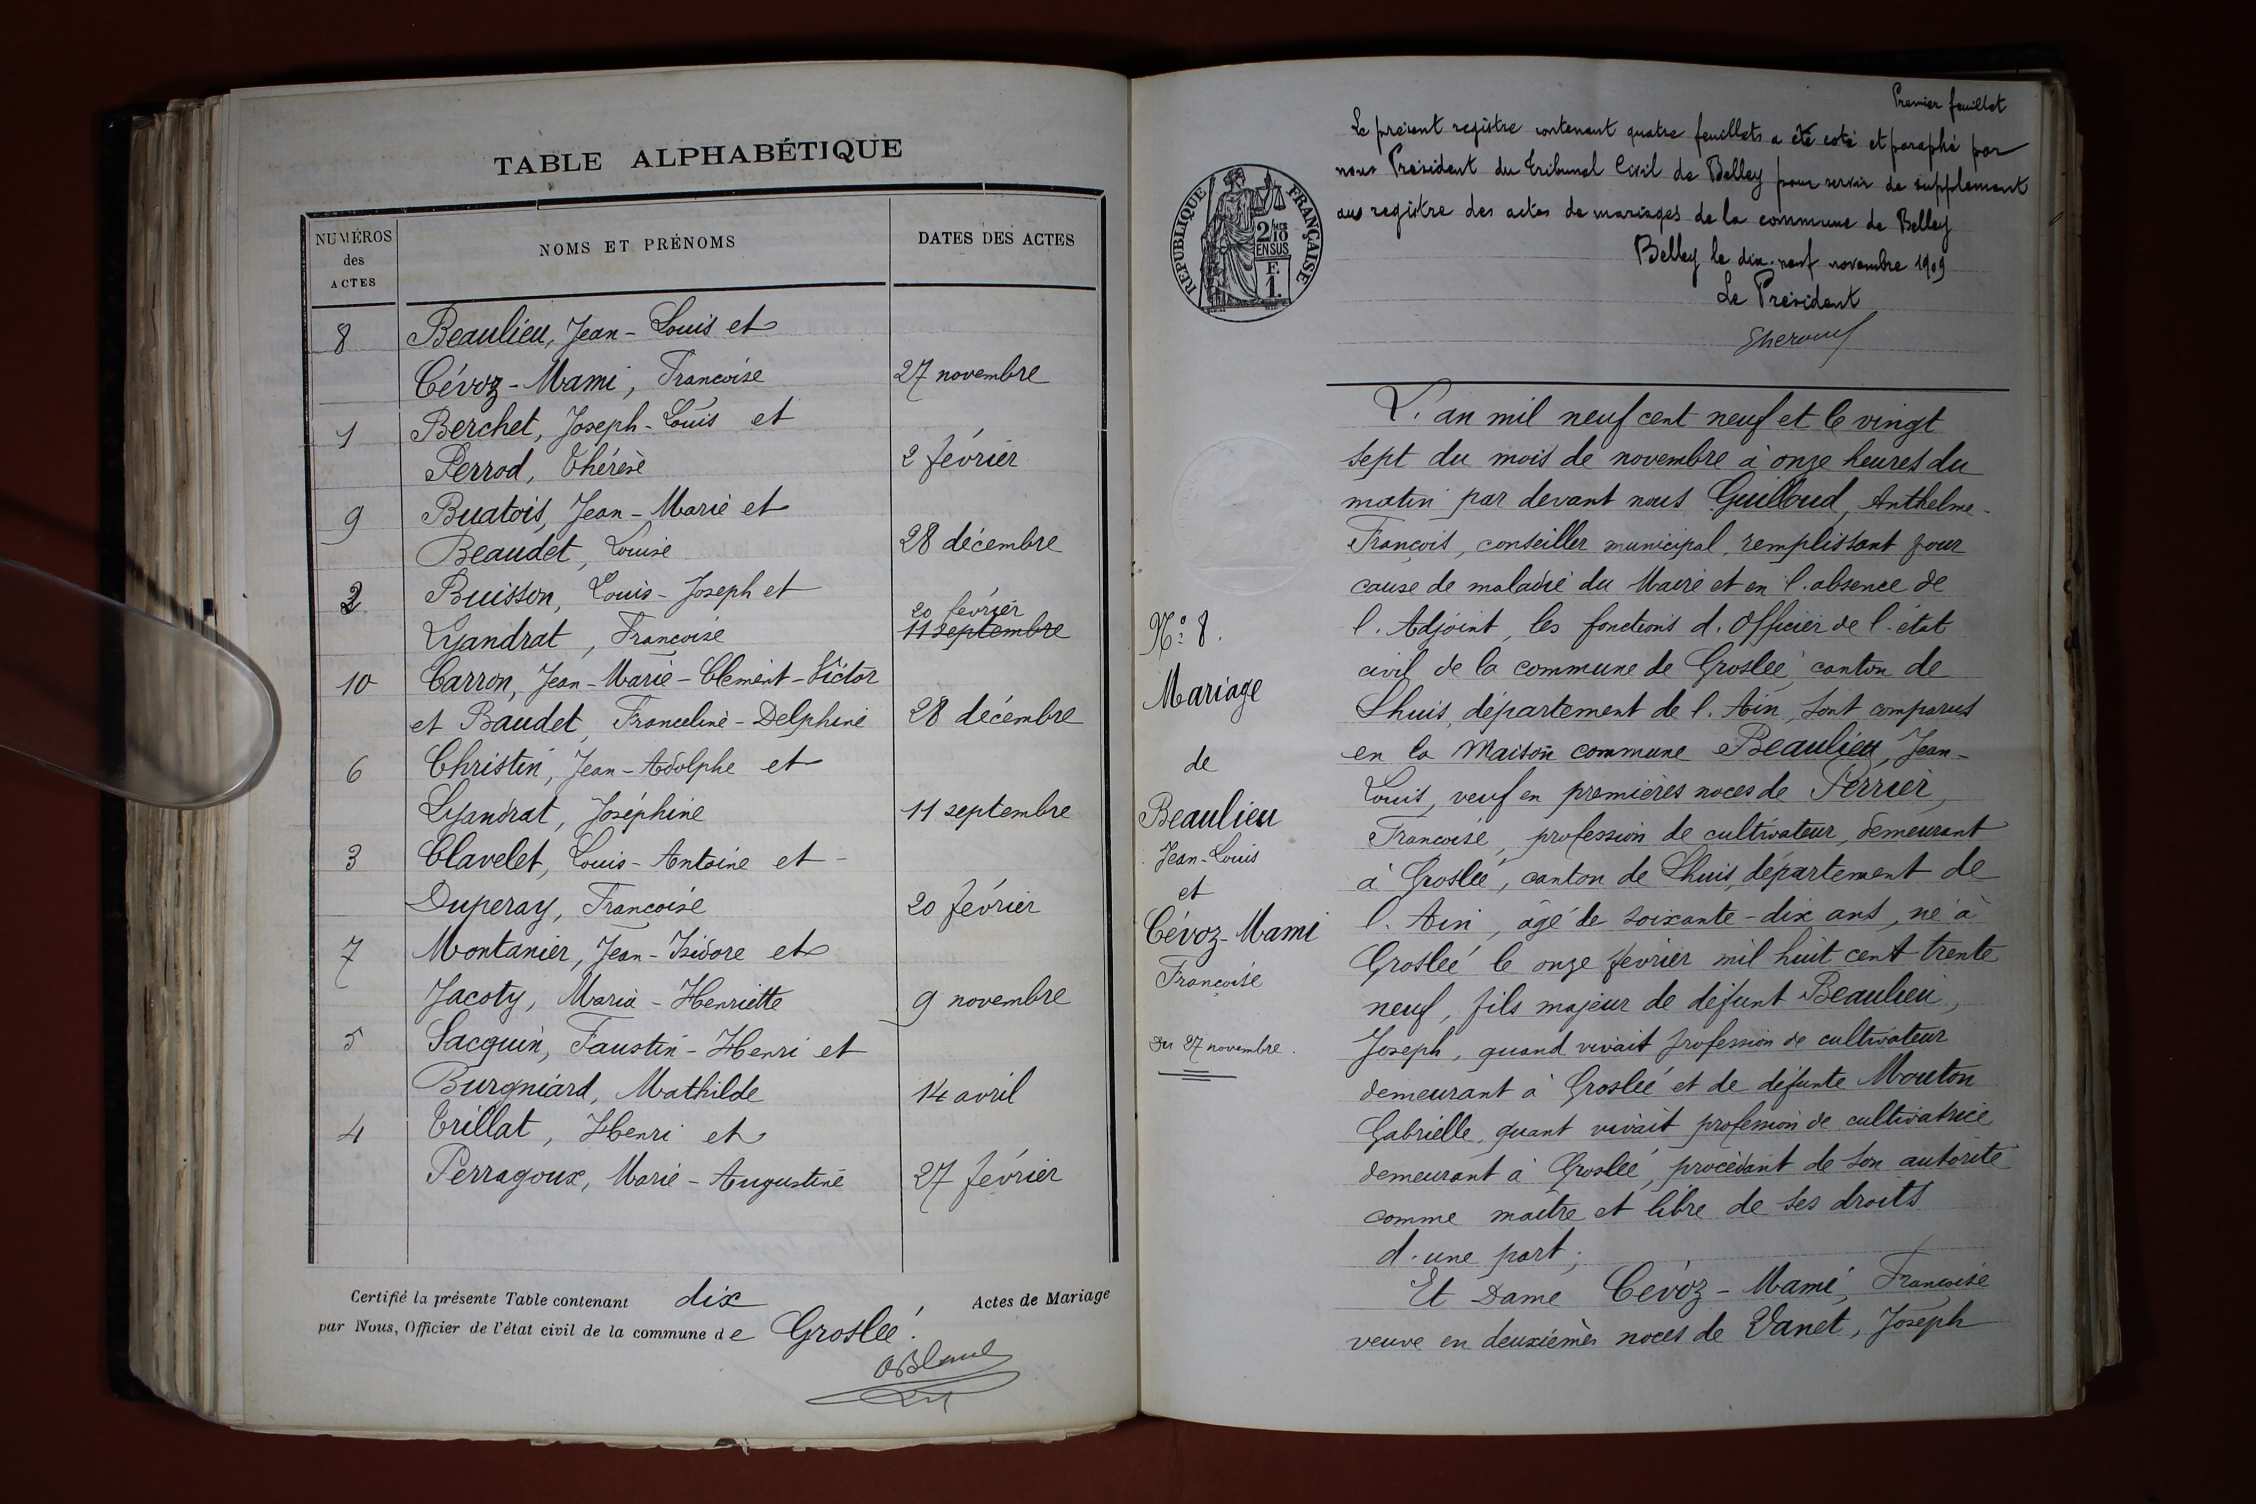 TABLE ALPHABÉTIQUE
NUMÉROS
des
ACTES
NOMS ET PRÉNOMS
DATES DES ACTES
8 Beaulieu, Jean-Louis et
Cévoz-Mami, Françoise 27 novembre
1 Berchet, Joseph-Louis et
Perrod, Thérèse 2 février
9 Buatois, Jean-Marie et
Beaudet, Louise 28 décembre
2 Buisson, Louis-Joseph et
20 février
Lyandrat, Françoise 11 septembre
10 Carron, Jean-Marie-Clément-Victor
et Baudet, Franceline-Delphine 28 décembre
6 Christin, Jean-Adolphe et
Lyandrat, Joséphine 11 septembre
3 Clavelet, Louis-Antoine et -
Duperay, Françoise 20 février
7 Montanier, Jean-Isidore et
Jacoty, Maria-Henriette 9 novembre
5 Sacquin, Faustin-Henri et
Burgniard, Mathilde 14 avril
4 Trillat, Henri et
Perragoux, Marie-Augustine 27 février
Certifié la présente Table contenant dix Actes de Mariage
par Nous, Officier de l'état civil de la commune de Groslée.
Premier feuillet
Le présent registre contenant quatre feuillets a été coté et paraphé par
nous Président du Tribunal Civil de Belley pour servir de supplément
au registre des actes de mariages de la commune de Belley
Belley le dix-neuf novembre 1909
Le Président
RÉPUBLIQUE FRANÇAISE
2/10
EN SUS
F.
1.
L'an mil neuf cent neuf et le vingt
sept du mois de novembre à onze heures du
matin par devant nous Guilloud, Anthelme-
François, conseiller municipal, remplissant pour
cause de maladie du Maire et en l'absence de
l'Adjoint, les fonctions d'Officier de l'état
civil de la commune de Groslée canton de
Lhuis, département de l'Ain, sont comparus
en la Maison commune Beaulieu, Jean-
Louis, veuf en premières noces de Perrier,
Françoise, profession de cultivateur, demeurant
à Groslée, canton de Lhuis, département de
l'Ain, âgé de soixante-dix ans, né à
Groslée le onze février mil huit cent trente
neuf, fils majeur de défunt Beaulieu,
Joseph, quand vivait profession de cultivateur
demeurant à Groslée et de défunte Mouton
Gabrielle, quant vivait profession de cultivatrice
demeurant à Groslée, procédant de son autorité
comme maître et libre de ses droits
d'une part;
Et Dame Cévoz-Mami, Françoise
veuve en deuxièmes noces de Vanet, Joseph
N° 8.
Mariage
de
Beaulieu
Jean-Louis
et
Cévoz-Mami
Françoise
Du 27 novembre.